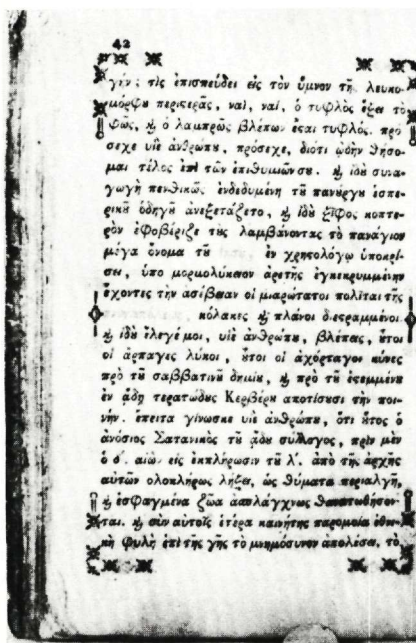 42
γήν; τὶς ἐπισπεύδει εἰς τὸν ὕμνον τῆς λευκο-
μόρφȣ περιςερᾶς, ναὶ, ναὶ, ὁ τυφλὸς ἕξει τὸ
φῶς, ϗ ὁ λαμπρῶς βλέπων ἔςαι τυφλός. πρό
σεχε υἱὲ ἀνθρώπȣ, πρόσεχε, διότι ᾠδὴν θήσο-
μαι τέλος ἐπὶ τῶν ἐπιθυμιῶν σȣ. ϗ ἰδȣ̀ συνα-
γωγὴ πενθικῶς ἐνδεδυμένη τȣ̃ πανȣ́ργȣ ἑσπε-
ρικȣ̃ ὁδηγȣ̃ ἀνεξετάζετο, ϗ ἰδȣ̀ ξίφος κοπτε-
ρὸν ἐφοβέριζε τȣ̀ς λαμβάνοντας τὸ πανάγιον
μέγα ὄνομα τȣ̃ ἐν χρηςολόγῳ ὑποκρί-
σει, ὑπὸ μορμολύκειον ἀρετῆς ἐγκεκρυμμένην
ἔχοντες τὴν ἀσέβειαν οἱ μιαρώτατοι πολῖται τῆς
κόλακες ϗ πλάνοι διεςραμμένοι.
ϗ ἰδȣ̀ ἔλεγέ μοι, υἱὲ ἀνθρώπȣ, βλέπεις, ȣ̔͂τοι
οἱ ἅρπαγες λύκοι, ȣ̔͂τοι οἱ ἀχόρταγοι κύνες
πρὸ τȣ̃ σαββατινȣ̃ δημίȣ, ϗ πρὸ τȣ̃ ἐςεμμένȣ
ἐν ᾅδῃ τερατώδȣς Κερβέρȣ ἀποτίσȣσι τὴν ποι-
νήν. ἔπειτα γίνωσκε υἱὲ ἀνθρώπȣ, ὅτι ȣ̔͂τος ὁ
ἀνόσιος Σατανικὸς τȣ̃ ᾅδȣ σύλλογος, πρὶν μὲν
ὁ αἰὼν εἰς ἐκπλήρωσιν τȣ̃ λ΄. ἀπὸ τῆς ἀρχῆς
αὐτῶν ὁλοκλήρως λήξει, ὡς θύματα περιαλγῆ,
ϗ ἐσφαγμένα ζῶα ἀσπλάγχνως θανατωθήσον-
ται. ϗ σὺν αὐτοῖς ἑτέρα καινήτης παρομοία ἐθνι-
κὴ φυλὴ ἐπὶ τῆς γῆς τὸ μνημόσυνον ἀπολέσει. τὸ